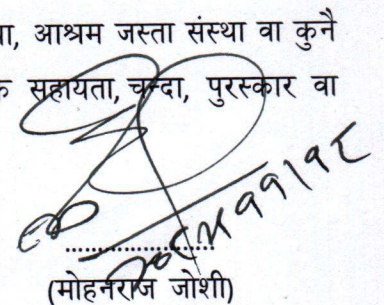 ा, आश्रम जस्ता संस्था वा कुनै
क सहायता, चन्दा, पुरस्कार वा
......................
(मोहनराज जोशी)